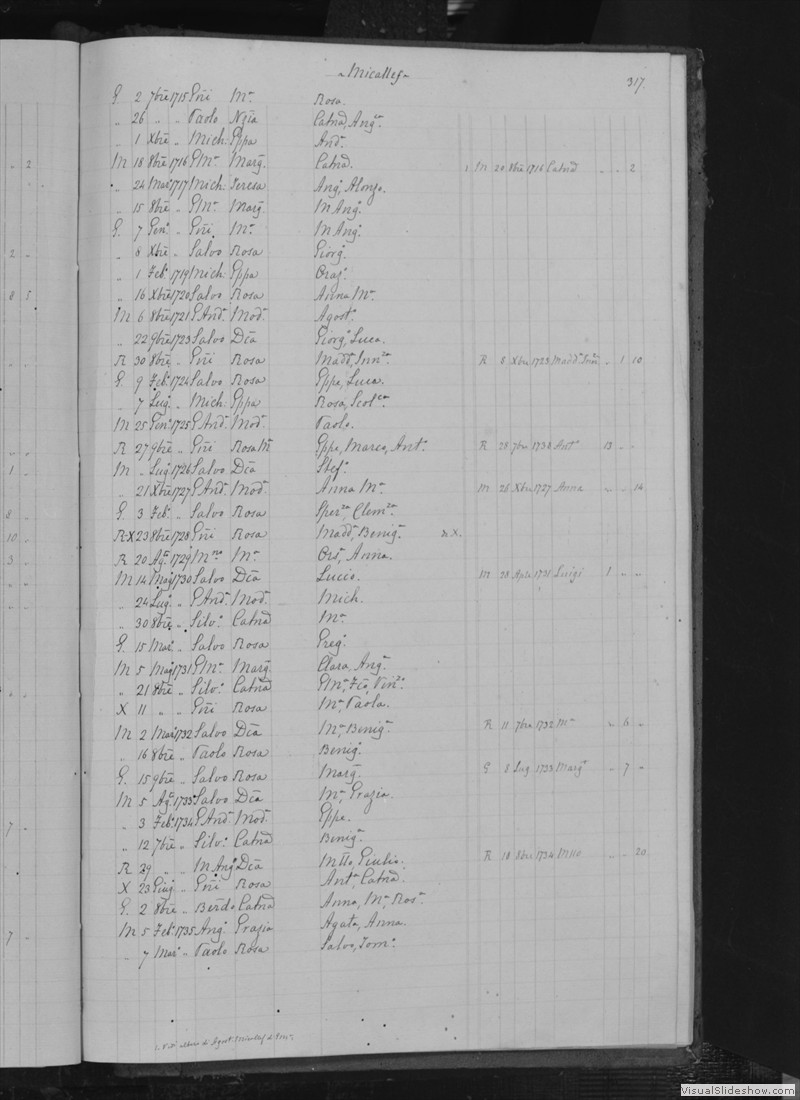 Micallef
317
G. 2 7bre 1715 Gñi Mª Rosa
" 26 " " Paolo Nzia Catnª, Angª
" 1 Xbre " Mich: Gppa Andª
M 18 8bre 1716 GMª Margª Catnª 1 M 20 8bre 1716 Catnª " " 2
" 24 Mar: 1717 Mich: Teresa Angº, Alonzo.
" 15 8bre " GMª Margª M Angº
G. 7 Gen: " Gñi Mª M Angº
" 8 Xbre " Salvo Rosa Giorgº
" 1 Feb: 1719 Mich: Gppa Orazº
" 16 Xbre 1720 Salvo Rosa Anna Mª
M 6 8bre 1721 GAndª Modª Agostº
" 22 9bre 1723 Salvo Dca Giorgº, Luca.
R 30 8bre " Gñi Rosa Maddª, Innzª R 8 Xbre 1723 Maddª Innª " 1 10
G. 9 Feb: 1724 Salvo Rosa Gppe, Luca.
" 7 Lug: " Mich: Gppa Rosa, Scolca
M 25 Gen: 1725 GAndª Modª Paolo.
R 27 9bre " Gñi Rosa Mª Gppe, Marco, Antº R 28 7bre 1738 Antº 13 " "
M " Lug: 1726 Salvo Dca Stefº
" 21 Xbre 1727 GAndª Modª Anna Mª M 26 Xbre 1727 Anna " " 14
G. 3 Feb: " Salvo Rosa Sperza Clemza
R-X 23 8bre 1728 Gñi Rosa Maddª, Benigª
R 20 Agº 1729 Mª Orsª, Anna.
M 14 Magº 1730 Salvo Dca Lucio M 28 Aple 1731 Luigi 1 " "
" 24 Lug: " GAndª Modª Mich.
" 30 8bre " Silvº Catnª Mª
G. 15 Mar: " Salvo Rosa Gregº
M 5 Magº 1731 GMª Margª Clara, Angª
" 21 8bre " Silvº Catnª GMª, Fco, Vinzº
X 11 " " Gñi Rosa Mª, Paola.
M 2 Mar: 1732 Salvo Dca Mª, Benigª R 11 7bre 1732 Mª " 6 "
" 16 8bre " Paolo Rosa Benigª
G. 15 9bre " Salvo Rosa Margª G 8 Lug 1733 Margª " 7 "
M 5 Agº 1733 Salvo Dca Mª, Grazia.
" 3 Feb: 1734 GAndª Modª Gppe.
" 12 7bre " Silvº Catnª Benigª
R 29 " " M Angº Dca Mllo, Giulio. R 18 8bre 1734 Mllo " " 20
X 23 Giug " Gñi Rosa Antª, Catnª
G. 2 8bre " Berdo Catnª Anna, Mª, Rosª
M 5 Feb: 1735 Angº Grazia Agata, Anna.
" 7 Mar: " Paolo Rosa Salvo, Tomº
VisualSlideshow.com